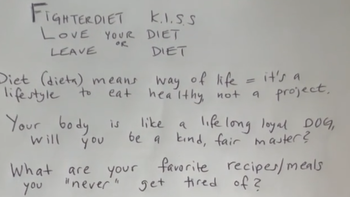 FIGHTERDIET K.I.S.S
LOVE YOUR DIET
OR
LEAVE DIET
Diet (dieta) means way of life = it's a
lifestyle to eat healthy, not a project.
Your body is like a lifelong loyal DOG,
will you be a kind, fair master?
What are your favorite recipes/meals
you "never" get tired of?